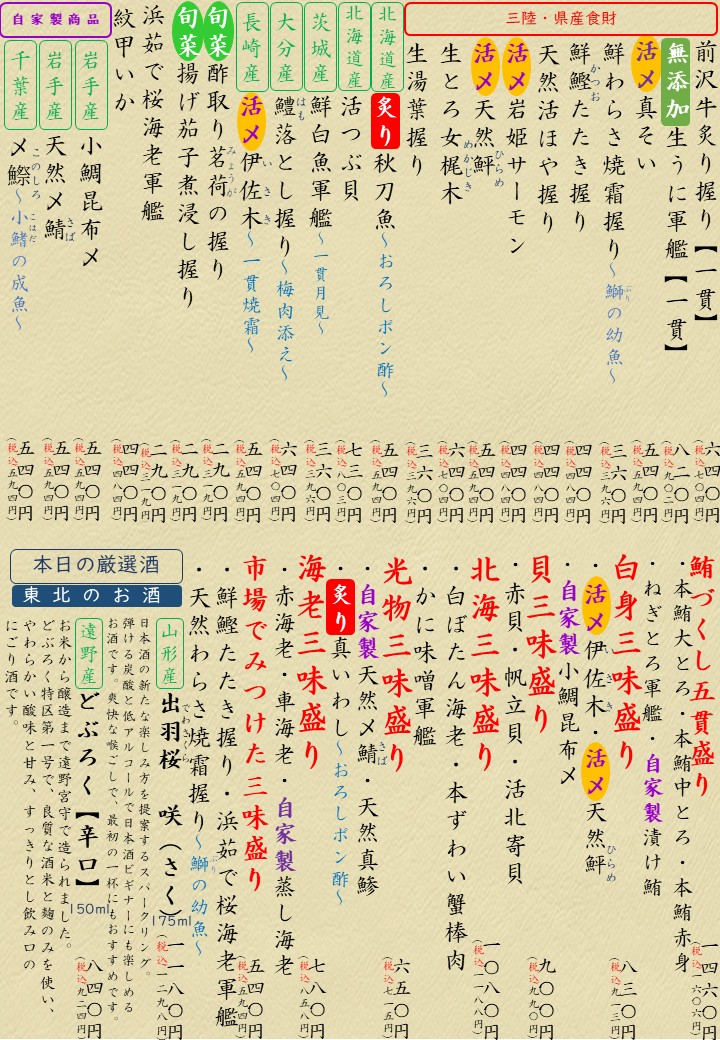 三陸・県産食財
前沢牛炙り握り【一貫】 六四〇円(税込七〇四円)
無添加 生うに軍艦【一貫】 八二〇円(税込九〇二円)
活〆 真そい 五四〇円(税込五九四円)
鮮わらさ焼霜握り～鰤の幼魚～ 三六〇円(税込三九六円)
鮮鰹たたき握り 四四〇円(税込四八四円)
天然活ほや握り 四四〇円(税込四八四円)
活〆 岩姫サーモン 四四〇円(税込四八四円)
活〆 天然鮃 五四〇円(税込五九四円)
生とろ女梶木 六四〇円(税込七〇四円)
生湯葉握り 三六〇円(税込三九六円)
北海道産 炙り 秋刀魚～おろしポン酢～ 五四〇円(税込五九四円)
北海道産 活つぶ貝 七三〇円(税込八〇三円)
茨城産 鮮白魚軍艦～一貫月見～ 三六〇円(税込三九六円)
大分産 鱧落とし握り～梅肉添え～ 六四〇円(税込七〇四円)
長崎産 活〆 伊佐木～一貫焼霜～ 五四〇円(税込五九四円)
旬菜 酢取り茗荷の握り 二九〇円(税込三一九円)
旬菜 揚げ茄子煮浸し握り 二九〇円(税込三一九円)
浜茹で桜海老軍艦 二九〇円(税込三一九円)
紋甲いか 四四〇円(税込四八四円)
自家製商品
岩手産 小鯛昆布〆 五四〇円(税込五九四円)
岩手産 天然〆鯖 五四〇円(税込五九四円)
千葉産 〆鰶～小鰭の成魚～ 五四〇円(税込五九四円)
鮪づくし五貫盛り 一四六〇円(税込一六〇六円)
・本鮪大とろ・本鮪中とろ・本鮪赤身
・ねぎとろ軍艦・自家製漬け鮪
白身三味盛り 八三〇円(税込九一三円)
・活〆伊佐木・活〆天然鮃
・自家製小鯛昆布〆
貝三味盛り 九〇〇円(税込九九〇円)
・赤貝・帆立貝・活北寄貝
北海三味盛り 一〇八〇円(税込一一八八円)
・白ぼたん海老・本ずわい蟹棒肉
・かに味噌軍艦
光物三味盛り 六五〇円(税込七一五円)
・自家製天然〆鯖・天然真鯵
・炙り真いわし～おろしポン酢～
海老三味盛り 七八〇円(税込八五八円)
・赤海老・車海老・自家製蒸し海老
市場でみつけた三味盛り 五四〇円(税込五九四円)
・鮮鰹たたき握り・浜茹で桜海老軍艦
・天然わらさ焼霜握り～鰤の幼魚～
本日の厳選酒
東北のお酒
山形産 出羽桜 咲(さく) 175ml 一一八〇円(税込一二九八円)
日本酒の新たな楽しみ方を提案するスパークリング。
弾ける炭酸と低アルコールで日本酒ビギナーにも楽しめる
お酒です。爽快な喉ごしで、最初の一杯にもおすすめです。
遠野産 どぶろく【辛口】 150ml 八四〇円(税込九二四円)
お米から醸造まで遠野宮守で造られました。
どぶろく特区第一号で、良質な酒米と麹のみを使い、
やわらかい酸味と甘み、すっきりとし飲み口の
にごり酒です。